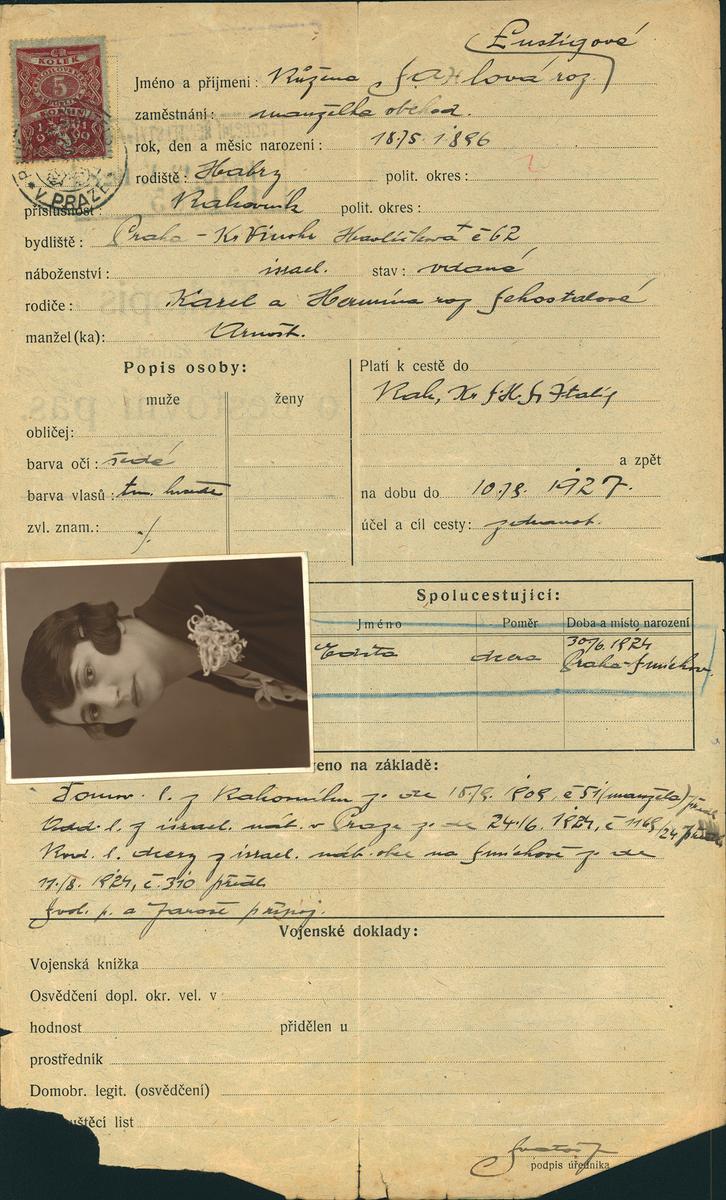 Lustigové
KOLEK
5
V PRAZE
Jméno a příjmení: Růžena roz.
zaměstnání: manželka obchod.
rok, den a měsíc narození: 18./5. 1896
rodiště: Habry polit. okres:
příslušnost: Rakovník polit. okres:
bydliště: Praha - Kr. Vinohr. Havlíčkova č 62
náboženství: israel. stav: vdaná
rodiče: Karel a Hermína roz.
manžel(ka): Arnošt.
Popis osoby:
muže ženy
obličej:
barva očí: šedé
barva vlasů: tm. hnědé
zvl. znam.: /.
Platí k cestě do
Rak, Kr. S.H.S., Italie
a zpět
na dobu do 1927.
účel a cíl cesty:
Spolucestující:
Jméno Poměr Doba a místo narození
Edita dcera 30/6. 1924
Praha-Smíchov.
eno na základě:
Domov. l. z Rakovníku ze dne 1909, č 51 (manžela) předl.
Odd. l. z israel. náb. v Praze ze dne 24./6. 1924, č 1169/24 předl.
Rod. l. dcery z israel. náb. obce na Smíchově ze dne
11./8. 1924, č. 310 předl.
připoj.
Vojenské doklady:
Vojenská knížka
Osvědčení dopl. okr. vel. v
hodnost přidělen u
prostředník
Domobr. legit. (osvědčení)
uštěcí list
podpis úředníka